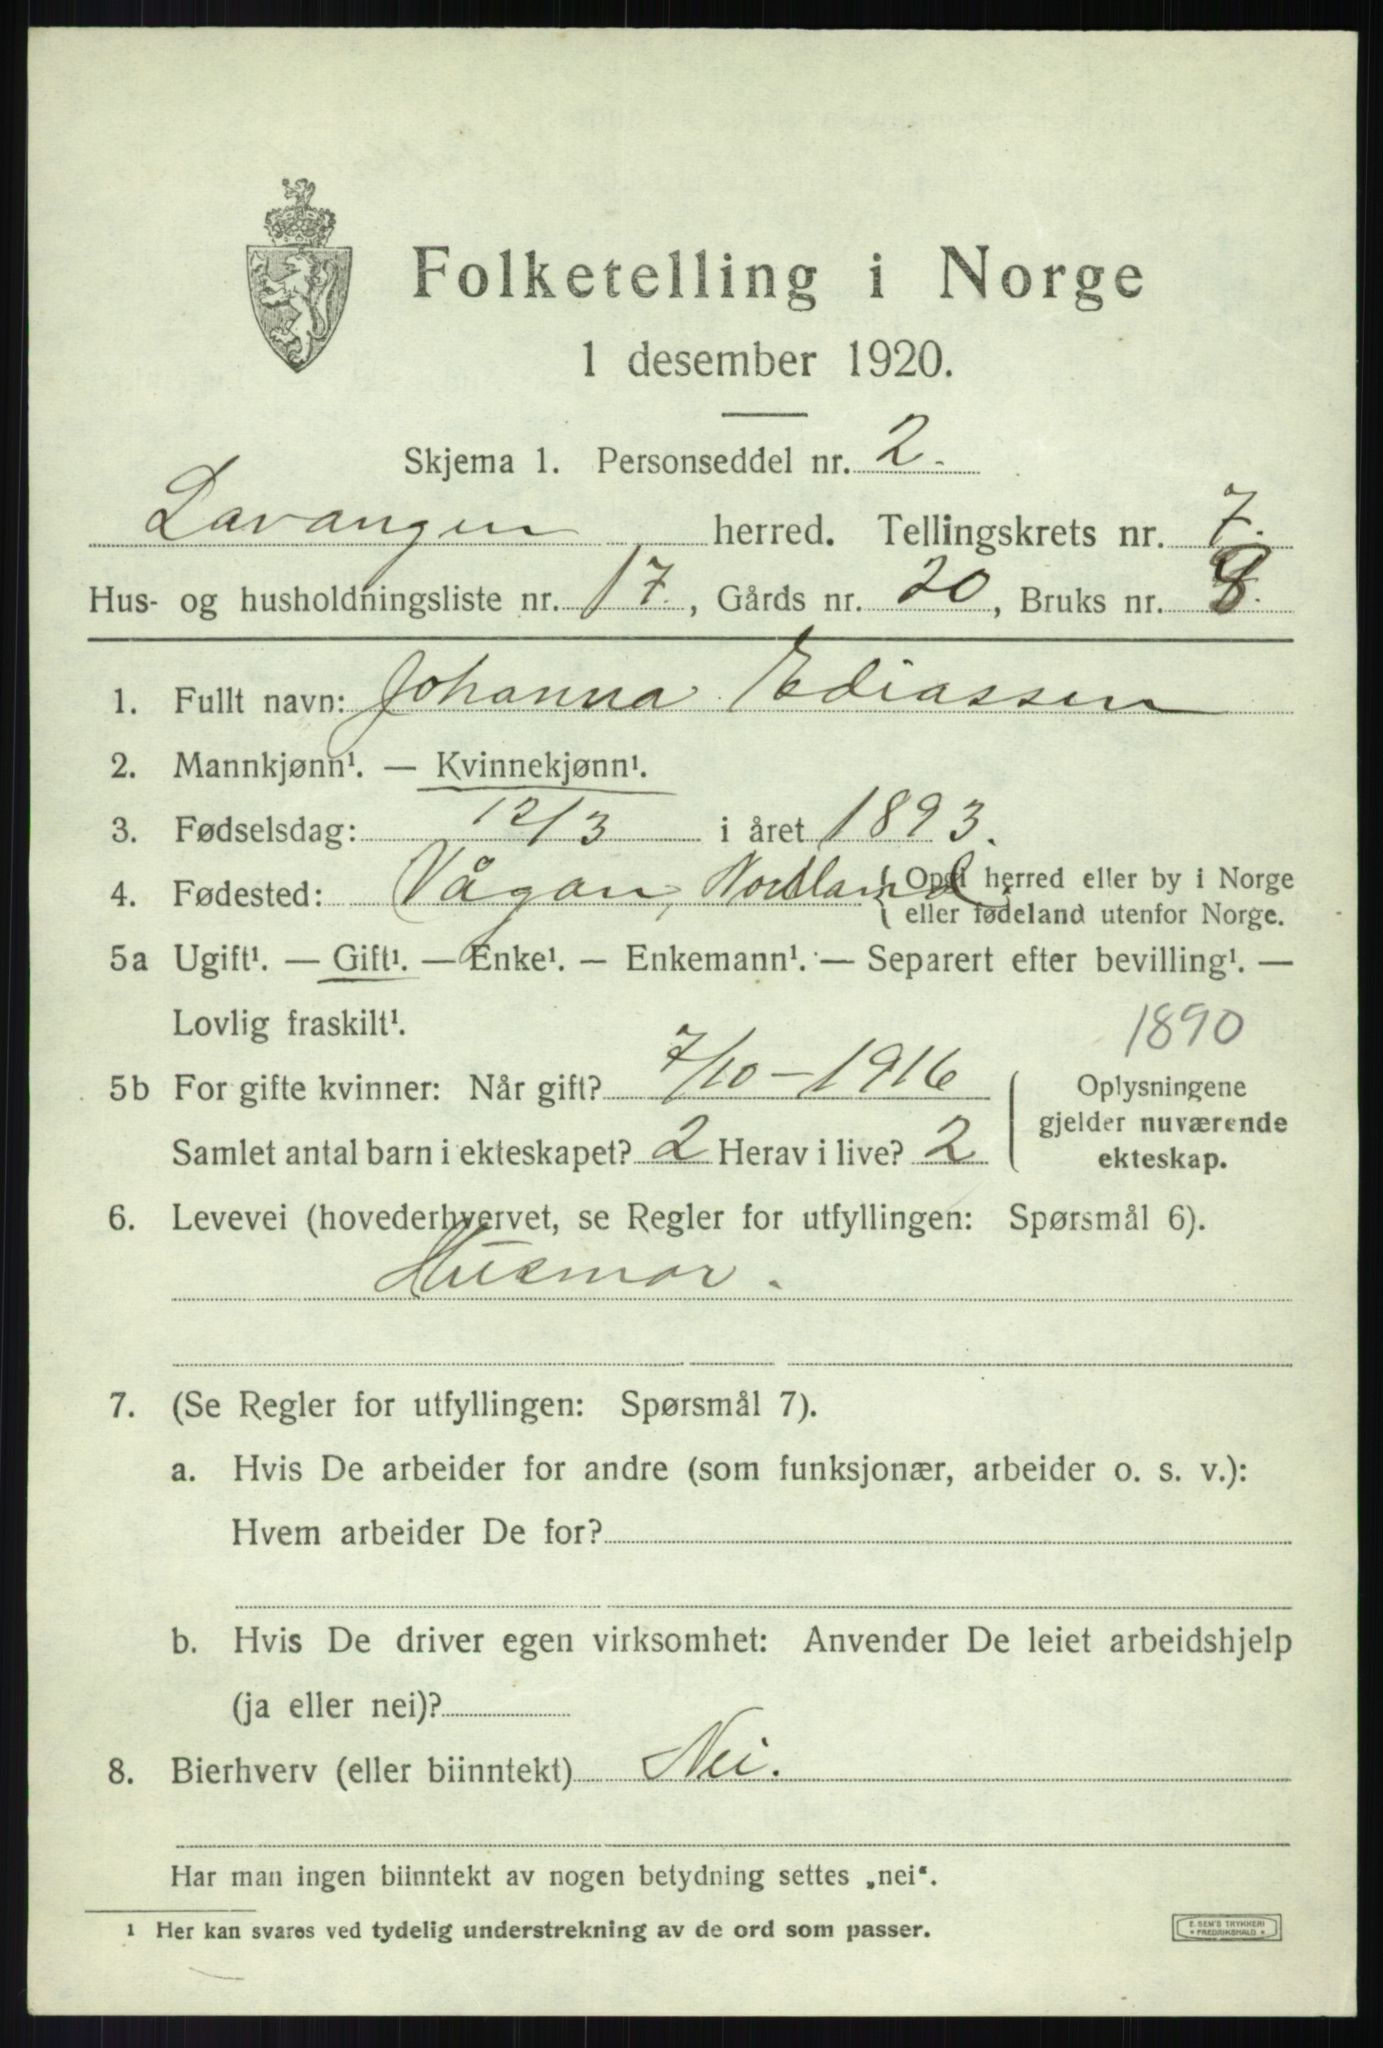 Folketelling i Norge
1 desember 1920.
Skjema 1. Personseddel nr. 2.
Lavangen herred. Tellingskrets nr. 7.
Hus- og husholdningsliste nr. 17., Gårds nr. 20, Bruks nr. 8.
1. Fullt navn: Johanna Ediassen
2. Mannkjønn¹. — Kvinnekjønn¹.
3. Fødselsdag: 12/3 i året 1893.
4. Fødested: Vågan, Nordland { Opgi herred eller by i Norge
eller fødeland utenfor Norge.
5a Ugift¹. — Gift¹. — Enke¹. — Enkemann¹. — Separert efter bevilling¹. —
Lovlig fraskilt¹.
1890
5b For gifte kvinner: Når gift? 7/10 - 1916
Samlet antal barn i ekteskapet? 2 Herav i live? 2
Oplysningene
gjelder nuværende
ekteskap.
6. Levevei (hovederhvervet, se Regler for utfyllingen: Spørsmål 6).
Husmor.
7. (Se Regler for utfyllingen: Spørsmål 7).
a. Hvis De arbeider for andre (som funksjonær, arbeider o. s. v.):
Hvem arbeider De for?
b. Hvis De driver egen virksomhet: Anvender De leiet arbeidshjelp
(ja eller nei)?
8. Bierhverv (eller biinntekt) Nei.
Har man ingen biinntekt av nogen betydning settes „nei“.
¹ Her kan svares ved tydelig understrekning av de ord som passer.
E. SEM'S TRYKKERI
• FREDRIKSHALD •